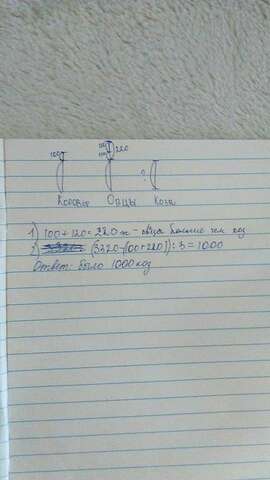 100 120 100 220 ?
Коровы Овцы Козы
1) 100+120=220 ж - овец больше чем коз
2) (3320-(100+220)):3=1000
Ответ: было 1000 коз